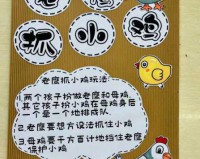 老鹰
抓小鸡
老鹰抓小鸡玩法:
1.两个孩子扮做老鹰和母鸡,
其它孩子扮小鸡在母鸡身后
一个牵一个地排成队。
2.老鹰要想方设法抓住小鸡
3.母鸡要千方百计地挡住老鹰
保护小鸡